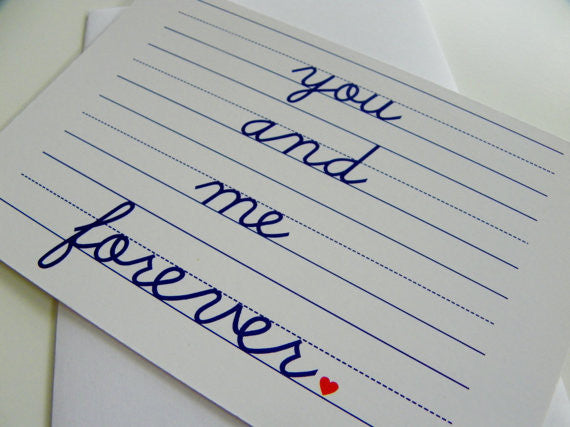 you
and
me
forever.